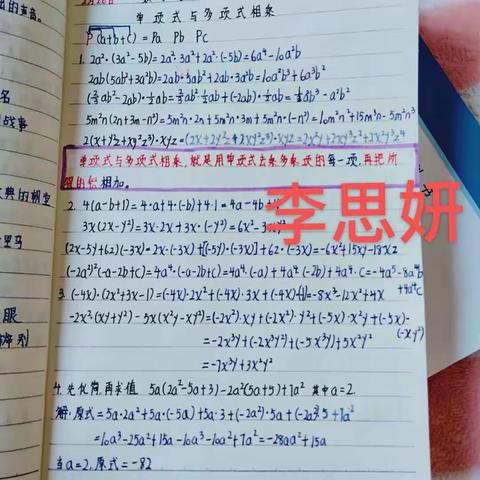 出的声音。
2月28日
单项式与多项式相乘
P(a+b+c) = Pa Pb Pc
1. 2a²·(3a²-5b)=2a²·3a²+2a²·(-5b)=6a⁴-10a²b
2ab(5ab²+3a²b)=2ab·5ab²+2ab·3a²b=10a²b³+6a³b²
(⅔ab²-2ab)·½ab=⅔ab²·½ab+(-2ab)·½ab=⅓a²b³-a²b²
5m²n(2n+3m-n²)=5m²n·2n+5m²n·3m+5m²n·(-n²)=10m²n²+15m³n-5m²n³
2(x+y²z+xy²z³)·xyz=(2x+2y²z+2xy²z³)·xyz=2x²yz+2xy³z²+2x²y³z⁴
单项式与多项式相乘,就是用单项式去乘多项式的每一项,再把所
得的积相加。
2. 4(a-b+1)=4·a+4·(-b)+4·1=4a-4b+4
3x(2x-y²)=3x·2x+3x·(-y²)=6x²-3xy²
李思妍
(2x-5y+6z)(-3x)=2x·(-3x)+[(-5y)·(-3x)]+6z·(-3x)=-6x²+15xy-18xz
(-2a²)²(-a-2b+c)=4a⁴·(-a-2b+c)=4a⁴·(-a)+4a⁴·(-2b)+4a⁴·c=-4a⁵-8a⁴b
+4a⁴c
3. (-4x)·(2x²+3x-1)=(-4x)·2x²+(-4x)·3x+(-4x)·(-1)=-8x³-12x²+4x
-2x²·(xy+y²)-5x(x²y-xy²)=(-2x²)·xy+(-2x²)·y²+(-5x)·x²y+(-5x)·
(-xy²)
=-2x³y+(-2x²y²)+(-5x³y)+5x²y²
=-7x³y+3x²y²
4. 先化简,再求值 5a(2a²-5a+3)-2a²(5a+5)+7a² 其中a=2.
解:原式=5a·2a²+5a·(-5a)+5a·3+(-2a²)·5a+(-2a²)·5+7a²
=10a³-25a²+15a-10a³-10a²+7a²=-28a²+15a
当a=2,原式=-82